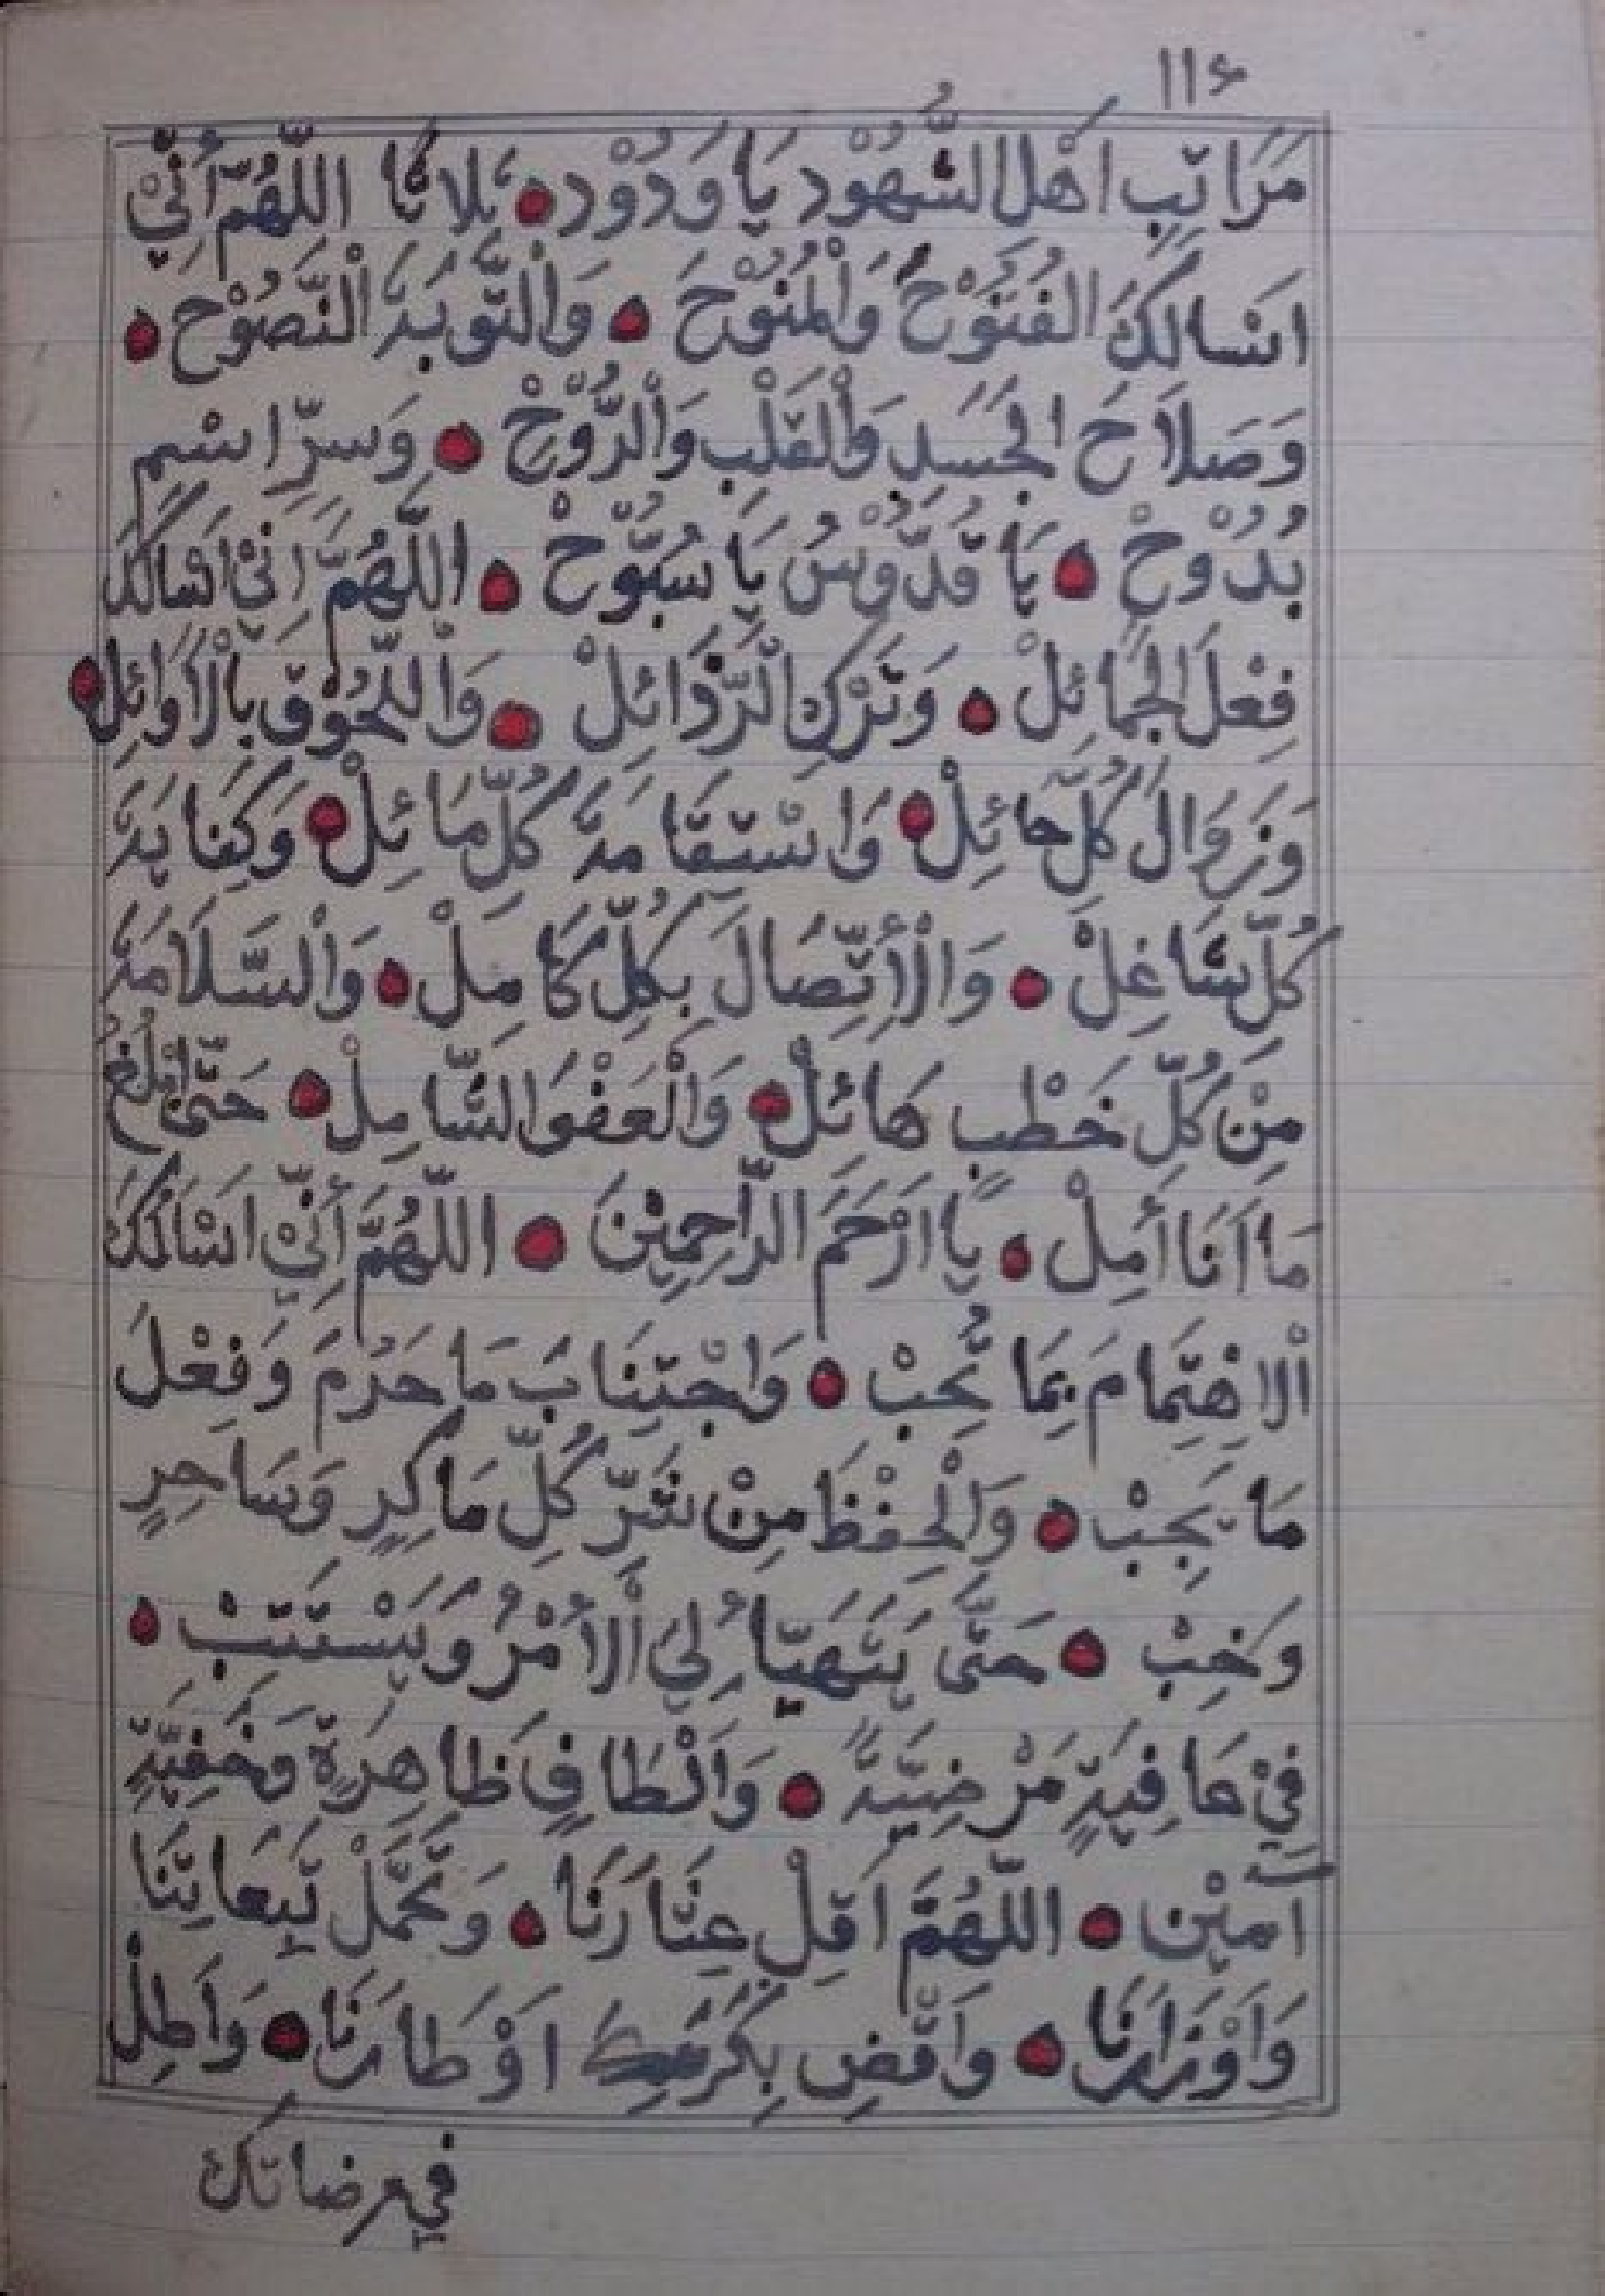 ١١٤
مَرَاتِبِ اَهْلِ الشُّهُوْدِ يَا وَدُوْدُ ۝ ثَلَاثًا اَللّٰهُمَّ اِنِّيْ
اَسْاَلُكَ الْفُتُوْحَ وَالْمُنُوْحَ ۝ وَالتَّوْبَةَ النَّصُوْحَ ۝
وَصَلَاحَ الْجَسَدِ وَالْقَلْبِ وَالرُّوْحِ ۝ وَسِرِّ اسْمِ
بُدُوْحْ ۝ يَا قُدُّوْسُ يَا سُبُّوْحْ ۝ اَللّٰهُمَّ اِنِّيْ اَسْاَلُكَ
فِعْلَ الْجَمَائِلْ ۝ وَتَرْكَ الرَّذَائِلْ ۝ وَاللُّحُوْقَ بِالْاَوَائِلْ ۝
وَزَوَالَ كُلِّ حَائِلْ ۝ وَاسْتِقَامَةَ كُلِّ مَائِلْ ۝ وَكِفَايَةَ
كُلِّ شَاغِلْ ۝ وَالْاِتِّصَالَ بِكُلِّ كَامِلْ ۝ وَالسَّلَامَةَ
مِنْ كُلِّ خَطْبٍ هَائِلْ ۝ وَالْعَفْوَ الشَّامِلْ ۝ حَتَّى اَبْلُغَ
مَا اَنَا أَمِلْ ۝ يَا اَرْحَمَ الرَّاحِمِيْنَ ۝ اَللّٰهُمَّ اِنِّيْ اَسْاَلُكَ
اَلْاِهْتِمَامَ بِمَا تُحِبْ ۝ وَاجْتِنَابَ مَا حَرُمَ وَفِعْلَ
مَا يَجِبْ ۝ وَالْحِفْظَ مِنْ شَرِّ كُلِّ مَاكِرٍ وَسَاحِرٍ
وَخِبْ ۝ حَتَّى يَتَهَيَّأَ لِيَ الْاَمْرُ وَيَسْتَتِبْ ۝
فِيْ عَافِيَةٍ مَرْضِيَّةً ۝ وَاَلْطَافٍ ظَاهِرَةٍ وَخَفِيَّةٍ
آمِيْن ۝ اَللّٰهُمَّ اَقِلْ عِثَارَنَا ۝ وَتَحَمَّلْ تَبِعَاتِنَا
وَاَوْزَارَنَا ۝ وَاقْضِ بِكَرَمِكَ اَوْطَارَنَا ۝ وَاَطِلْ
في مرضاتك